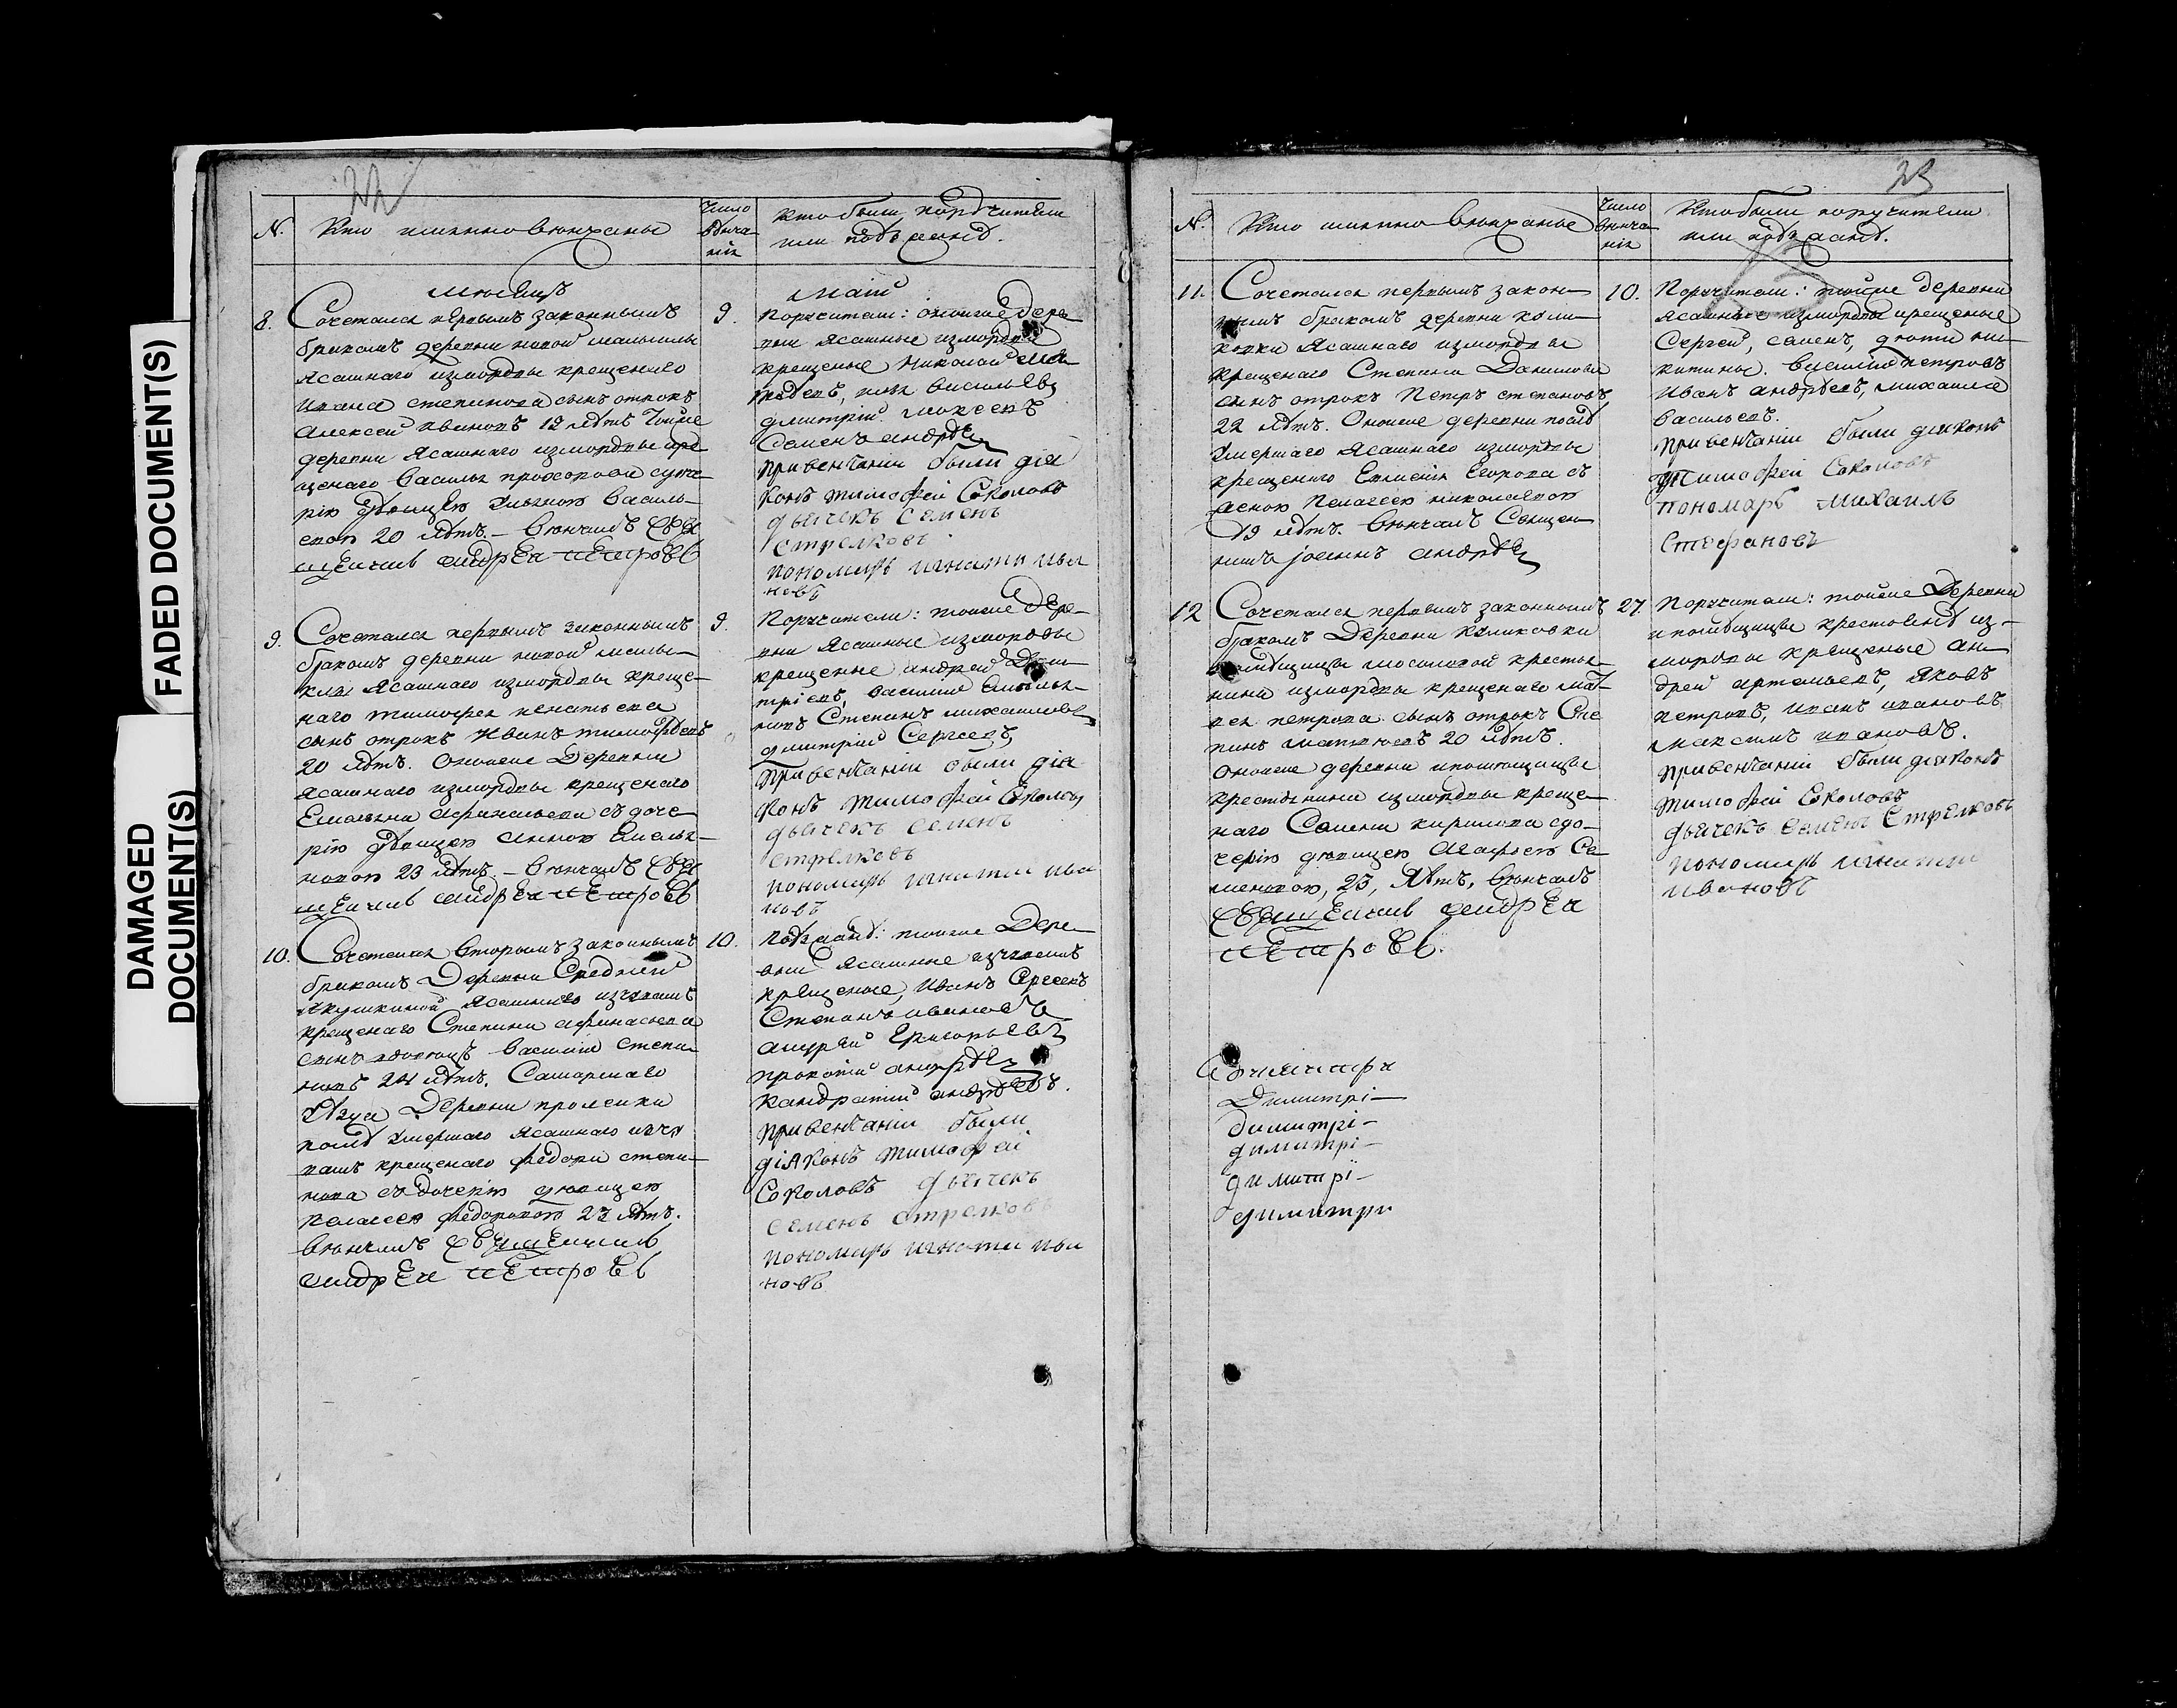 FADED DOCUMENT(S)
DAMAGED
DOCUMENT(S)
22
N.
Кто именно венчаны
Число
венча
нія
Кто были поручители
или поѣзжанѣ.
Мѣсяцъ
Маій
8.
Сочетался первымъ законнымъ
бракомъ деревни новой
ясашнаго измордвы крещенаго
Ивана степанова сынъ отрокъ
Алексей Ивановъ 19 лѣтъ тойже
деревни ясашнаго измордвы кре
щенаго Василья прохорова сдоче
рію дѣвицею Василь
евою 20 лѣтъ. – Вѣнчалъ свя
щенникъ андрей петровъ
9.
Поручители: оноиже дере
вни ясашные измордвы
крещеные Николай
Васильевъ
дмитрій моксеевъ
Семенъ андреевъ
привенчаніи были дія
конъ тимофей Соколовъ
дьячекъ Семенъ
стрелковъ
пономарь игнати ива
новъ
9.
Сочетался первымъ законнымъ
бракомъ деревни новой
ясашнаго измордвы креще
наго тимофея игнатьева
сынъ отрокъ Иванъ тимофѣевъ
20 лѣтъ. Оноиже Деревни
ясашнаго измордвы крещенаго
Емельяна афанасьева съ доче
рію дѣвицею Анною Емелья
новою 23 лѣтъ. – Вѣнчалъ свя
щенникъ андрей петровъ
9.
Поручители: тоиже дере
вни ясашные измордвы
крещеные андрей Дми
тріевъ, василій Емелья
новъ Степанъ михаиловъ
дмитрій Сергеевъ,
привенчаніи были дія
конъ тимофей Соколовъ
дьячекъ Семенъ
стрелковъ
пономарь игнатии ива
новъ
10.
Сочетался вторымъ законнымъ
бракомъ Деревни Средней
Якушкиной ясашнаго изчувашъ
крещенаго Степана афанасьева
сынъ вдовецъ Василій степа
новъ 24 лѣтъ. Самарскаго
уѣзда Деревни
послѣ умершаго ясашнаго изчу
вашъ крещенаго федора степа
нова съ дочерію дѣвицею
пелагеею федоровою 23 лѣтъ.
Вѣнчалъ священникъ
андрей петровъ
10.
поѣзжанѣ: тоиже Дере
вни ясашные изчувашъ
крещеные, Иванъ Сергеевъ
Степанъ ивановъ
андрей Григорьевъ
прокопій андреевъ
Кандратій андрѣевъ.
привенчаніи были
діяконъ тимофей
Соколовъ дьячекъ
Семенъ стрелковъ
пономарь игнатии ива
новъ
23
N.
Кто именно венчаные
Число
венча
нія
Кто были поручители
или поѣзжанѣ.
11.
Сочетался первымъ закон
нымъ бракомъ деревни кули
ковки ясашнаго измордвы
крещенаго Степана Данилова
сынъ отрокъ Петръ степановъ
22 лѣтъ. Оноиже деревни послѣ
умершаго ясашнаго измордвы
крещенаго Егорова съ
женою Пелагеею николаевою
19 лѣтъ. Вѣнчалъ Священ
никъ іоаннъ андреевъ
10.
Поручители: тоиже деревни
ясашные измордвы крещеные
Сергей, семенъ, дѣти ни
китины. Василій петровъ
Иванъ андрѣевъ, михаила
васильевъ.
привенчаніи были діяконъ
Тимофей Соколовъ
пономарь Михаилъ
Стефановъ
12
Сочетался первымъ законнымъ
бракомъ Деревни Куликовки
помѣщицы крестья
нина измордвы крещенаго мат
вея петрова сынъ отрокъ Сте
панъ матвеевъ 20 лѣтъ.
Оноиже деревни ипомещицы
крестьянина измордвы креще
наго Семена кирилова сдо
черію дѣвицею Агафьею Се
меновою, 23, лѣтъ, Вѣнчалъ
священникъ андрей
петровъ.
27.
Поручители: тоиже Деревни
ипомѣщицы крестьянѣ из
мордвы крещеные ан
дрей артемьевъ, Яковъ
петровъ, иванъ ивановъ
максимъ ивановъ.
привенчаніи были діяконъ
тимофей Соколовъ
дьячекъ Семенъ Стрелковъ
пономарь игнатии
ивановъ
Димитрі
димитрі
димитрі
димитрі
димитри